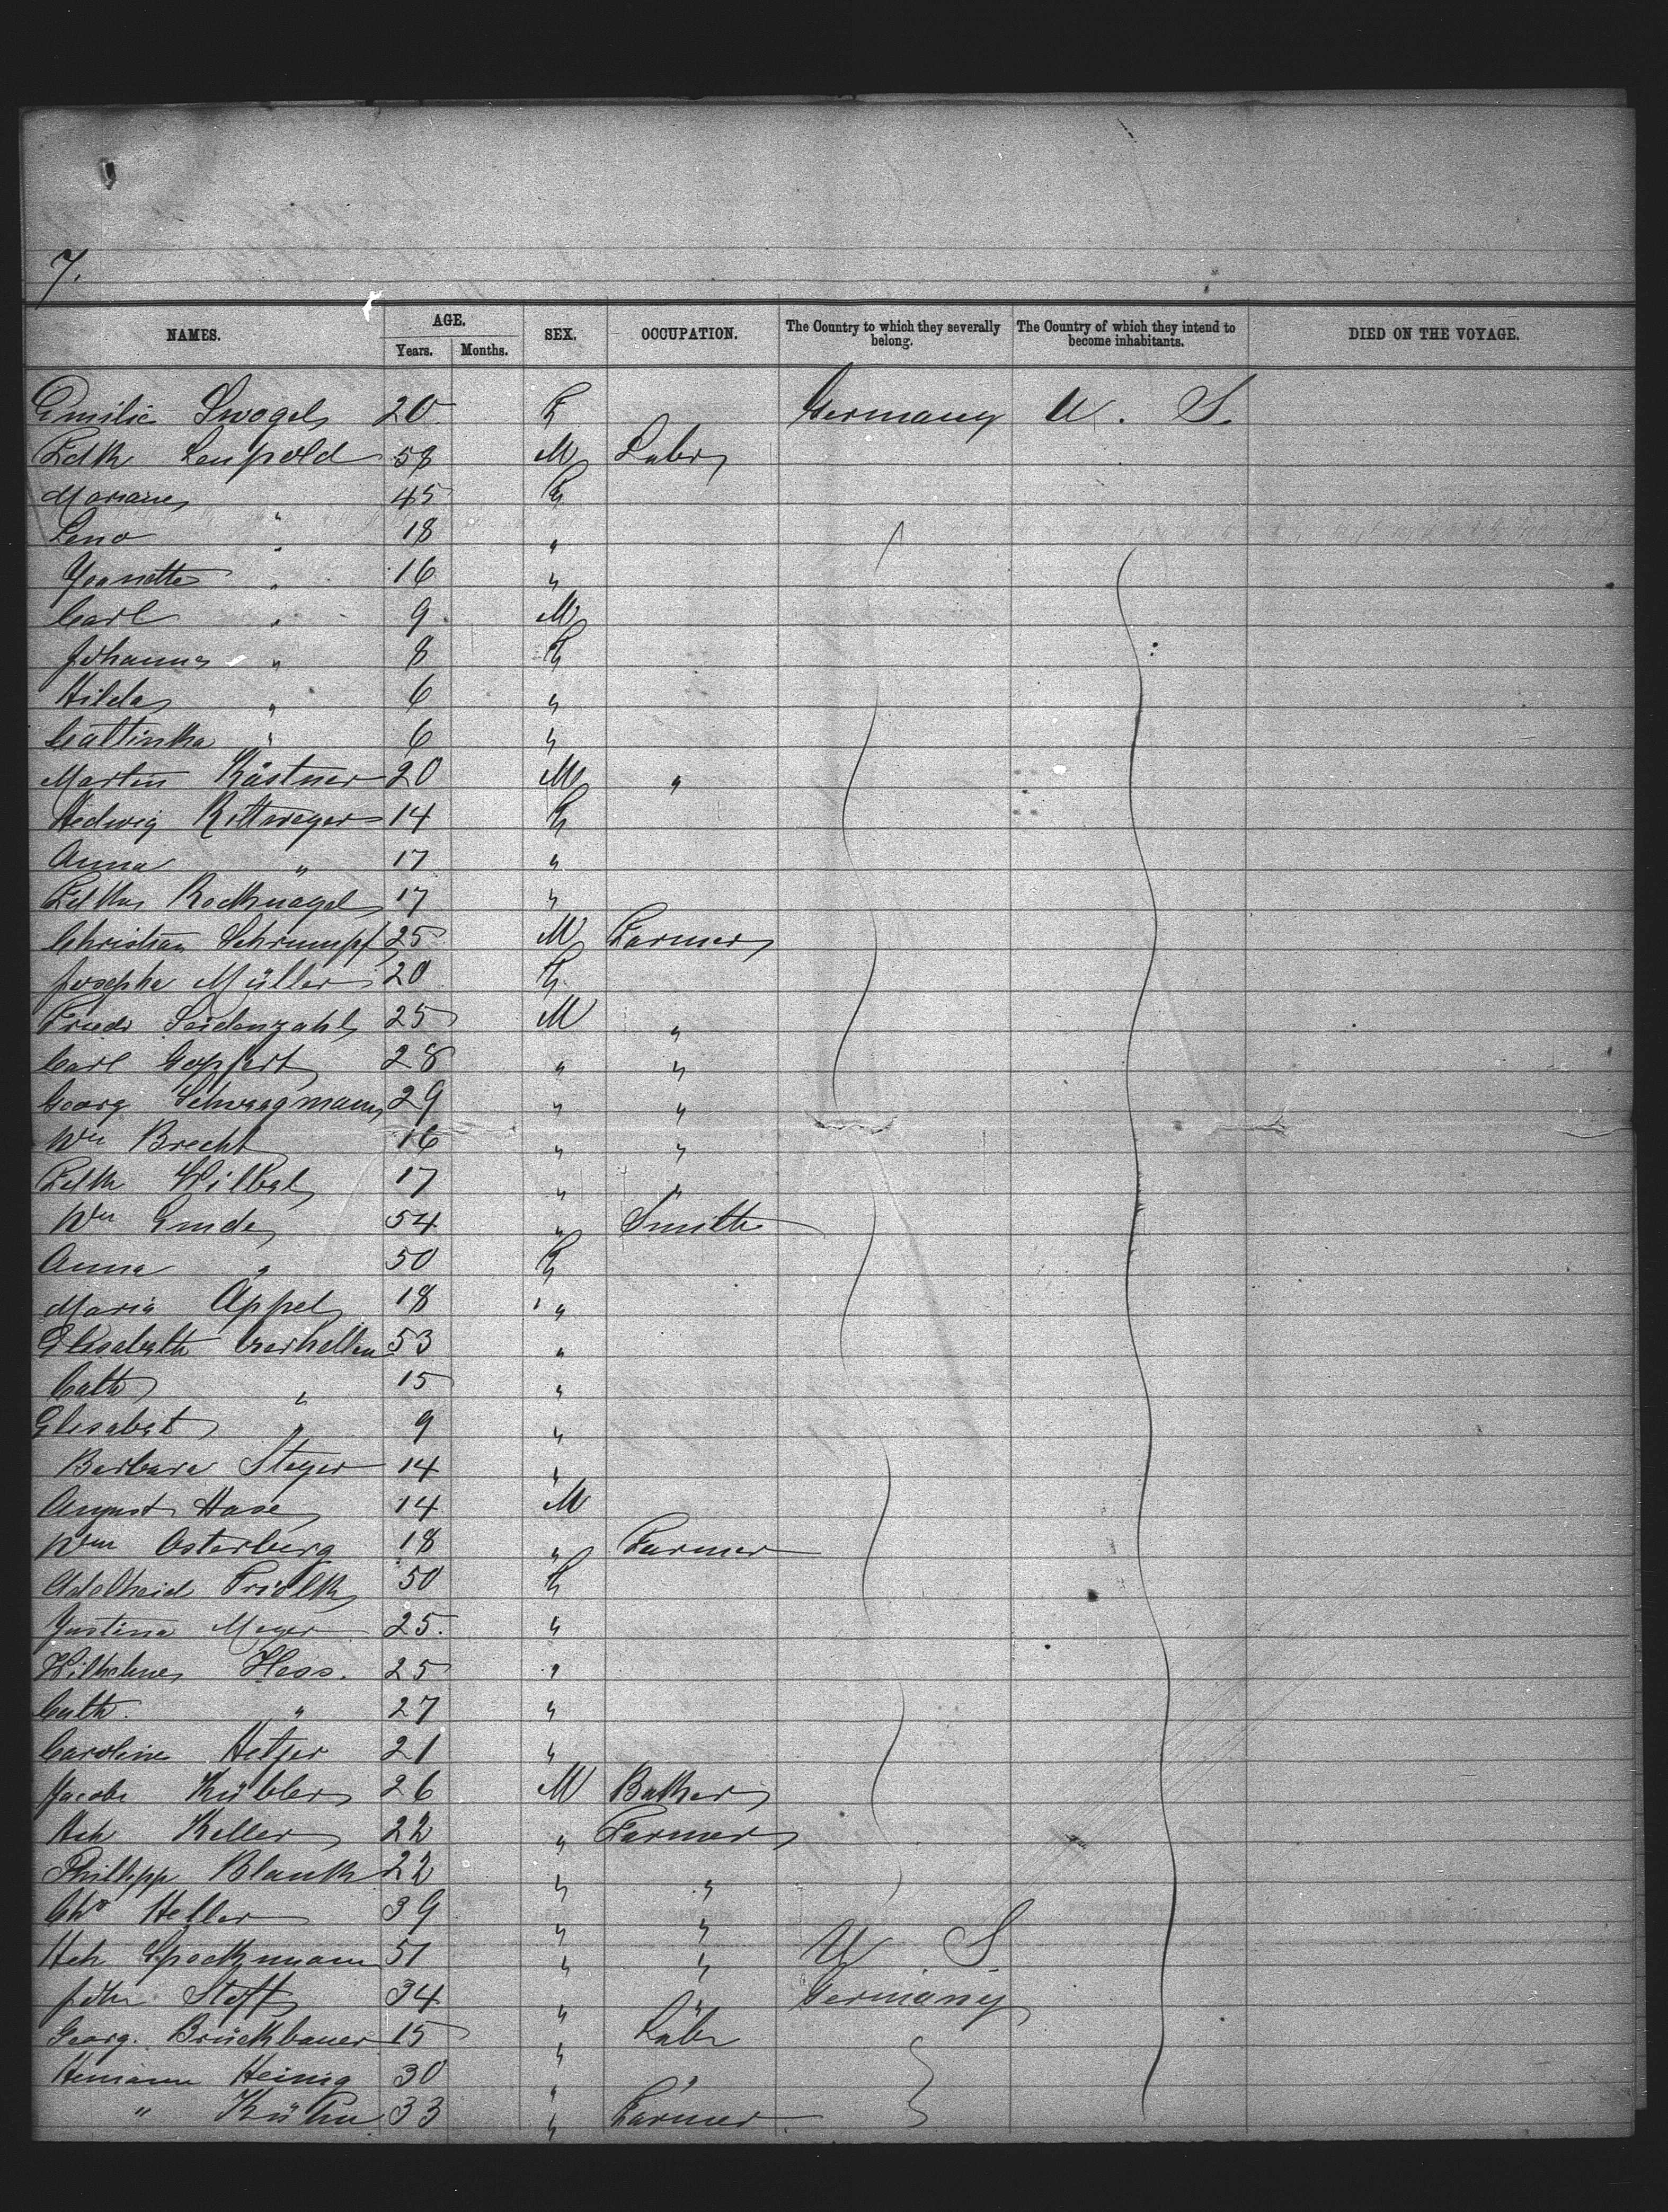 7.
NAMES. AGE. SEX. OCCUPATION. The Country to which they severally belong. The Country of which they intend to become inhabitants. DIED ON THE VOYAGE.
Years. Months.
Emilie 20 F Germany U. S.
Leupold 58 M Labr
45 F
Lena " 18 "
16 "
Carl " 9 M
" 8 F
Hilda " 6 "
Cattinka " 6 "
Martin Kästner 20 M "
Hedwig Rittweger 14 F
Anna " 17 "
17 "
Christian Schrumpf 25 M Farmer
Josepha Müller 20 F
Friedr Seidenzahl 25 M "
Carl Gopfert 28 " "
Georg 29 " "
Wm Brecht 16 " "
17 " "
Wm Emde 54 " Smith
Anna " 50 F
Maria Appel 18 "
Elisabeth 53 "
Cath " 15 "
Elisabet " 9 "
Barbara Steger 14 "
August Hase 14 M
Wm Osterberg 18 " Farmer
Adelheid 50 F
Justina Meyer 25. "
Hess. 25 "
Cath. " 27 "
Caroline 21 "
Jacob Kübler 26 M Baker
Hch Keller 22 " Farmer
Philipp Blank 22 " "
Heller 39 " "
Hch 51 " " U S.
34 " " Germany
Georg. Brückbauer 15 " Labr
Hemann Heinig 30 " "
" Kühn 33 " Farmer